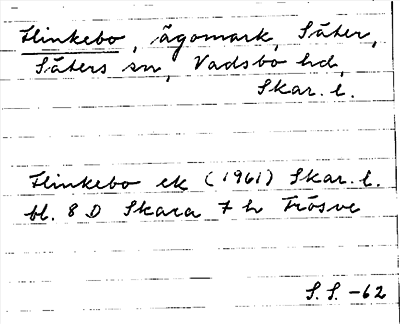 Flinkebo, ägomark, Säter,
Säters sn, Vadsbo hd,
Skar. l.
Flinkebo ek (1961) Skar. l.
bl. 8 D Skara 7 h Trösve
S. S. -62